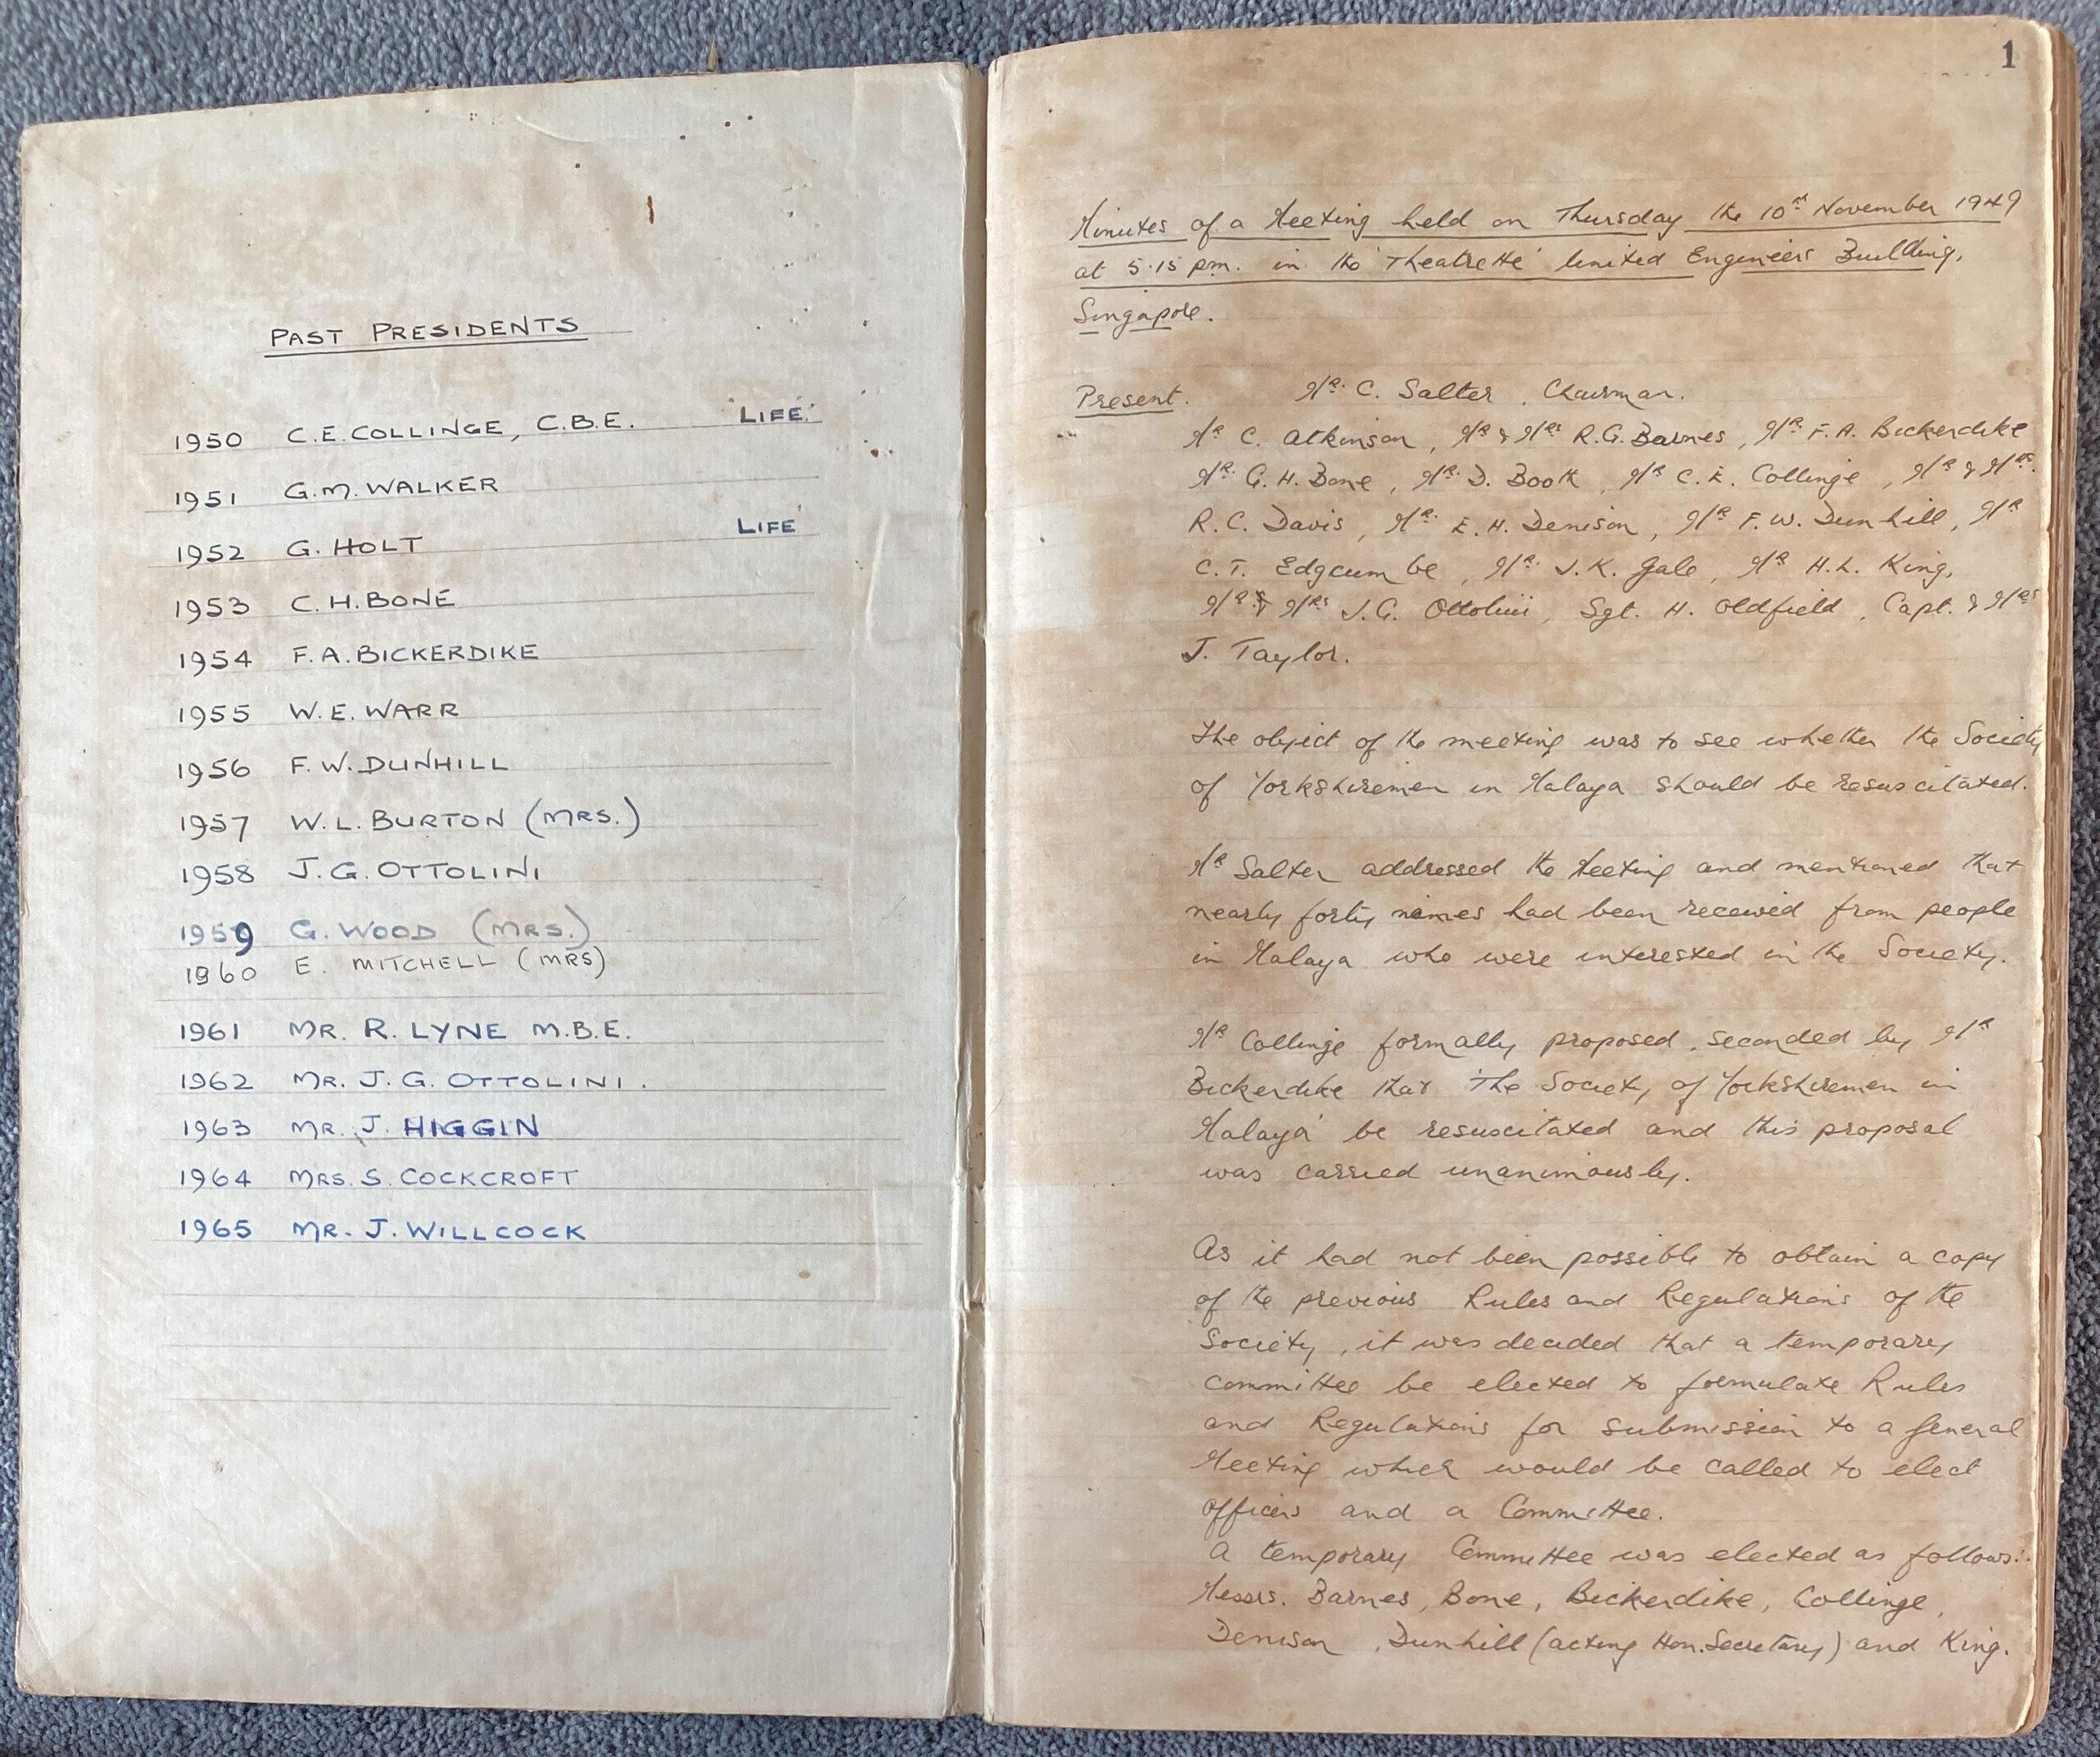 PAST PRESIDENTS
1950 C.E. COLLINGE, C.B.E. "LIFE"
1951 G.M. WALKER
1952 G. HOLT "LIFE"
1953 C.H. BONE
1954 F.A. BICKERDIKE
1955 W.E. WARR
1956 F.W. DUNHILL
1957 W.L. BURTON (MRS.)
1958 J.G. OTTOLINI
1959 G. WOOD (MRS.)
1960 E. MITCHELL (MRS)
1961 MR. R. LYNE M.B.E.
1962 MR. J.G. OTTOLINI.
1963 MR. J. HIGGIN
1964 MRS. S. COCKCROFT
1965 MR. J. WILLCOCK
1
Minutes of a Meeting held on Thursday the 10th November 1949
at 5.15 p.m. in the 'Theatrette' United Engineers Building,
Singapore.
Present. Mr. C. Salter, Chairman.
Mr C. Atkinson, Mr & Mrs R.G. Barnes, Mr. F.A. Bickerdike
Mr. G.H. Bone, Mr. D. Booth, Mr C.E. Collinge, Mr & Mrs.
R.C. Davis, Mr. E.H. Denison, Mr F.W. Dunhill, Mr
C.T. Edgcumbe, Mr. J.K. Gale, Mr H.L. King,
Mr. & Mrs J.G. Ottolini, Sgt. H. Oldfield, Capt. & Mrs
J. Taylor.
The object of the meeting was to see whether the Society
of Yorkshiremen in Malaya should be resuscitated.
Mr Salter addressed the Meeting and mentioned that
nearly forty names had been received from people
in Malaya who were interested in the Society.
Mr Collinge formally proposed, seconded by Mr
Bickerdike that 'The Society of Yorkshiremen in
Malaya' be resuscitated and this proposal
was carried unanimously.
As it had not been possible to obtain a copy
of the previous Rules and Regulations of the
Society, it was decided that a temporary
committee be elected to formulate Rules
and Regulations for submission to a General
Meeting which would be called to elect
Officers and a Committee.
A temporary Committee was elected as follows:-
Messrs. Barnes, Bone, Bickerdike, Collinge,
Denison, Dunhill (acting Hon. Secretary) and King.